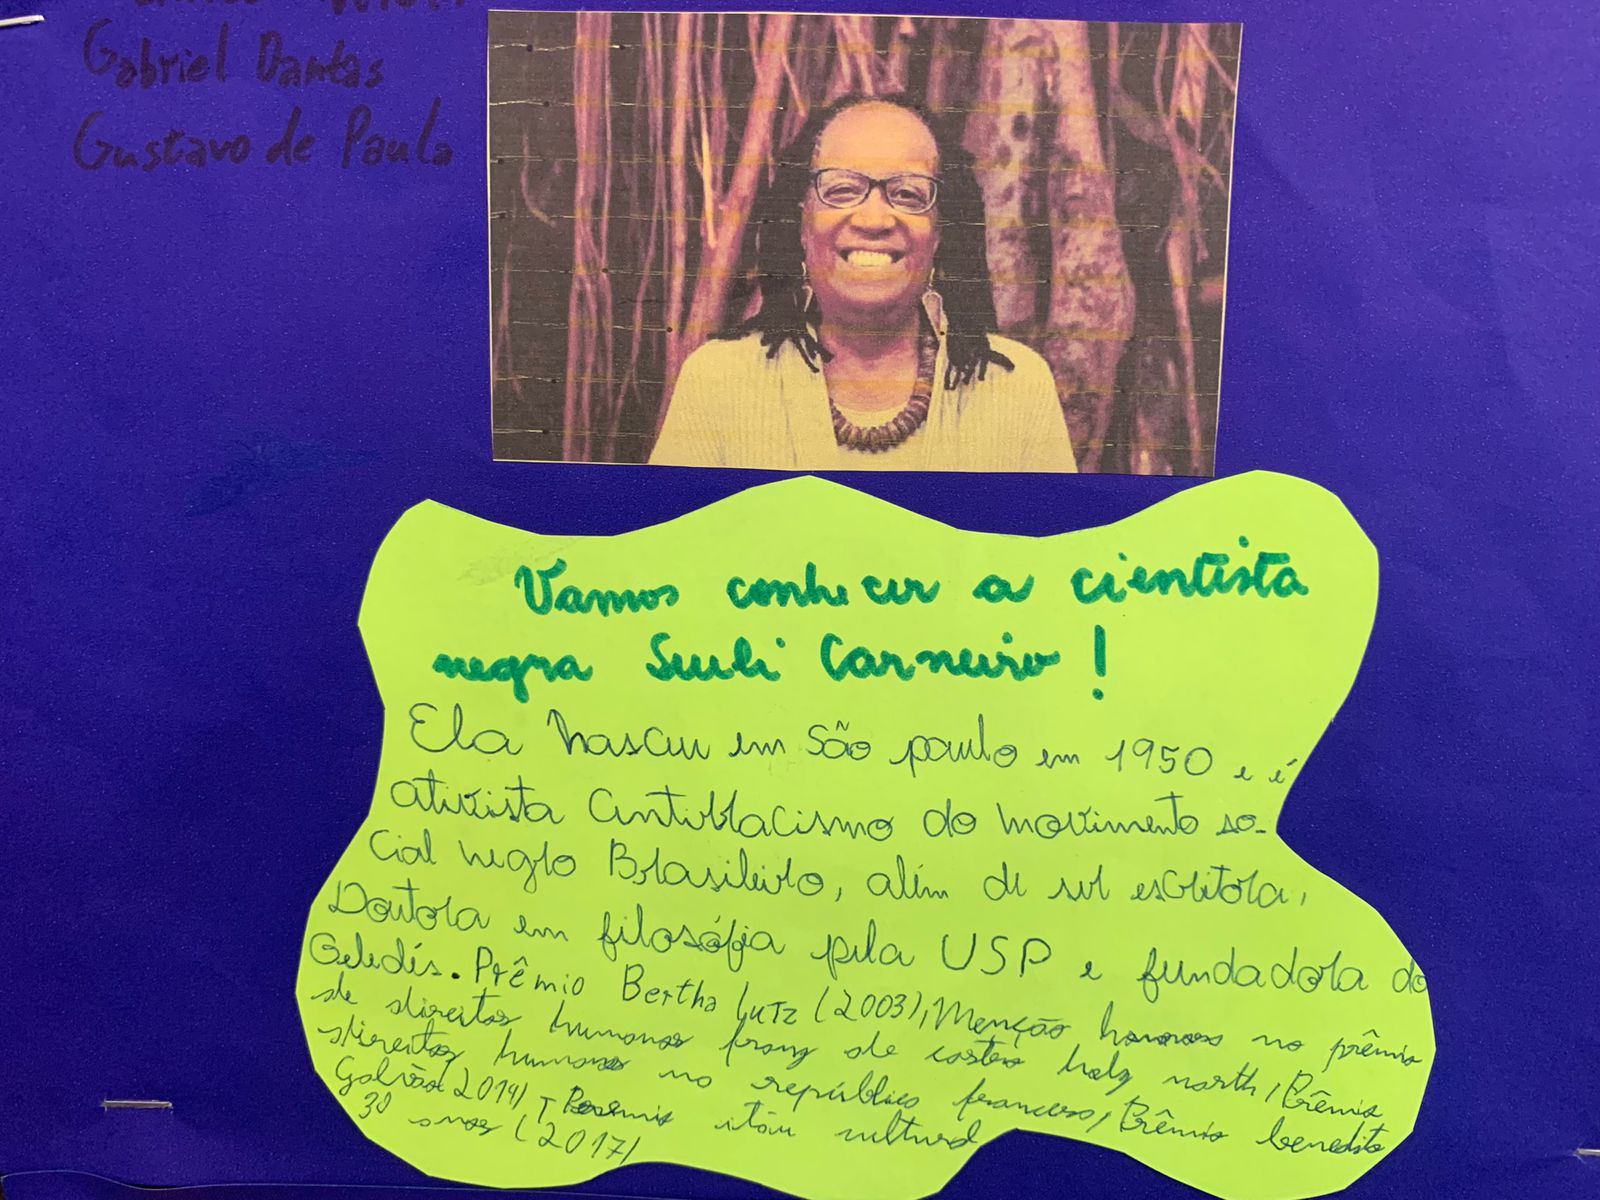 Gabriel Dantas
Gustavo de Paula
Vamos conhecer a cientista
negra Sueli Carneiro!
Ela nasceu em São paulo em 1950 e é
ativista antirracismo do movimento so-
cial negro Brasileiro, além de ser escritora,
Doutora em filosófia pela USP e fundadora do
Geledés. Prêmio Bertha Lutz (2003), Menção honrosa no prêmio
de direitos humanos franz de castro holz warth, Prêmio
direitos humanos no república francesa, Prêmio benedito
Galvão 2014), Prêmio itáu cultural
30 anos (2017)